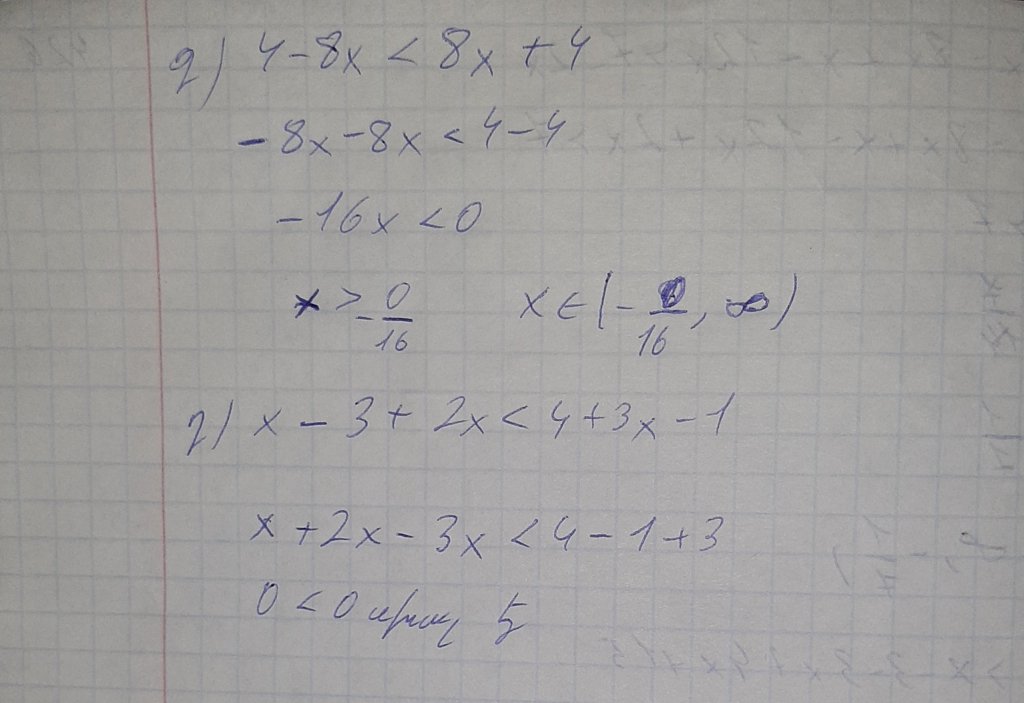 գ) 4-8x < 8x + 4
-8x-8x < 4-4
-16x < 0
x > -0/16 x ∈ (-0/16, ∞)
դ) x - 3 + 2x < 4+3x-1
x +2x - 3x < 4-1+3
0 < 0 սխալ է